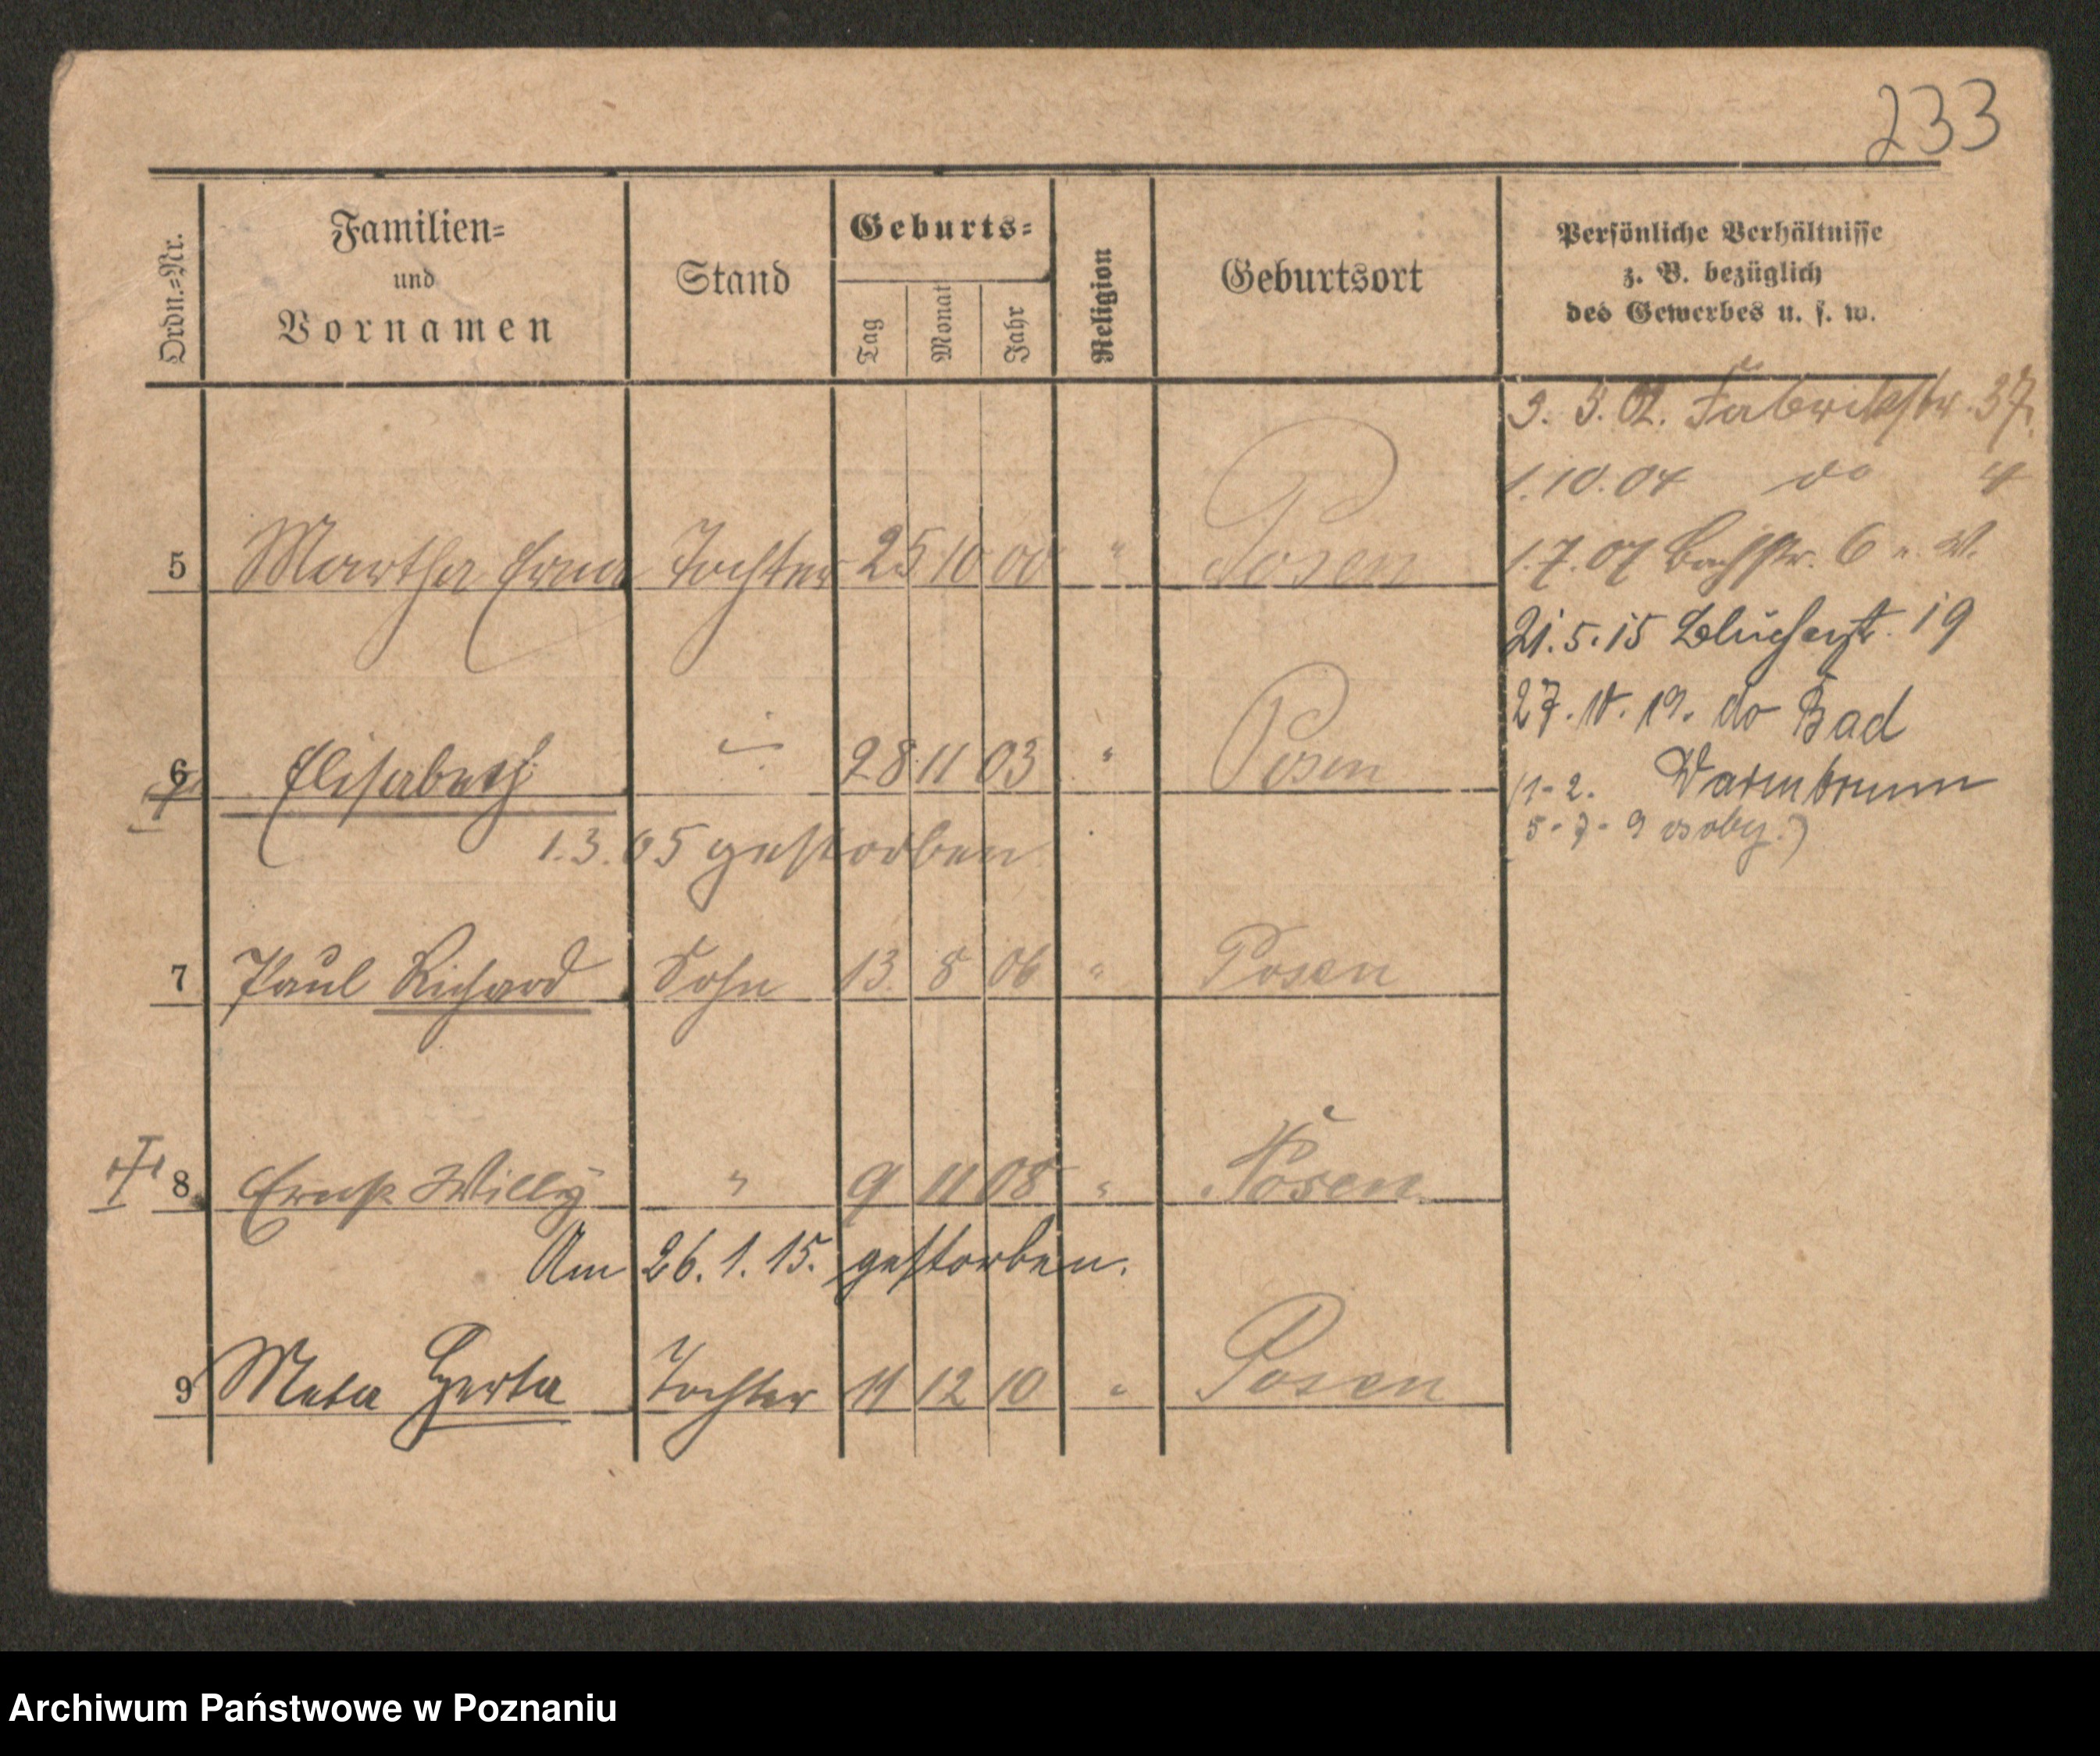 233
Ordn.-Nr.
Familien-
und
Vornamen
Stand
Geburts-
Tag
Monat
Jahr
Religion
Geburtsort
Persönliche Verhältnisse
z. B. bezüglich
des Gewerbes u. s. w.
3. 5. 02. Fabrikstr. 37.
1.10.04 do 4
5 Martha Erna Tochter 25 10 00 " Posen
1.7.07 Bachstr. 6
21.5.15 Blücherstr. 19
27. 10. 19. do Bad
Warmbrunn
6 Elisabeth 28 11 03 " Posen
(1-2.
5-7-9 osoby.)
1.3.05 gestorben
7 Paul Richard Sohn 13 8 06 " Posen
8 Ernst Willy " 9 11 08 " Posen
Am 26. 1. 15. gestorben.
9 Meta Herta Tochter 11 12 10 " Posen
Archiwum Państwowe w Poznaniu